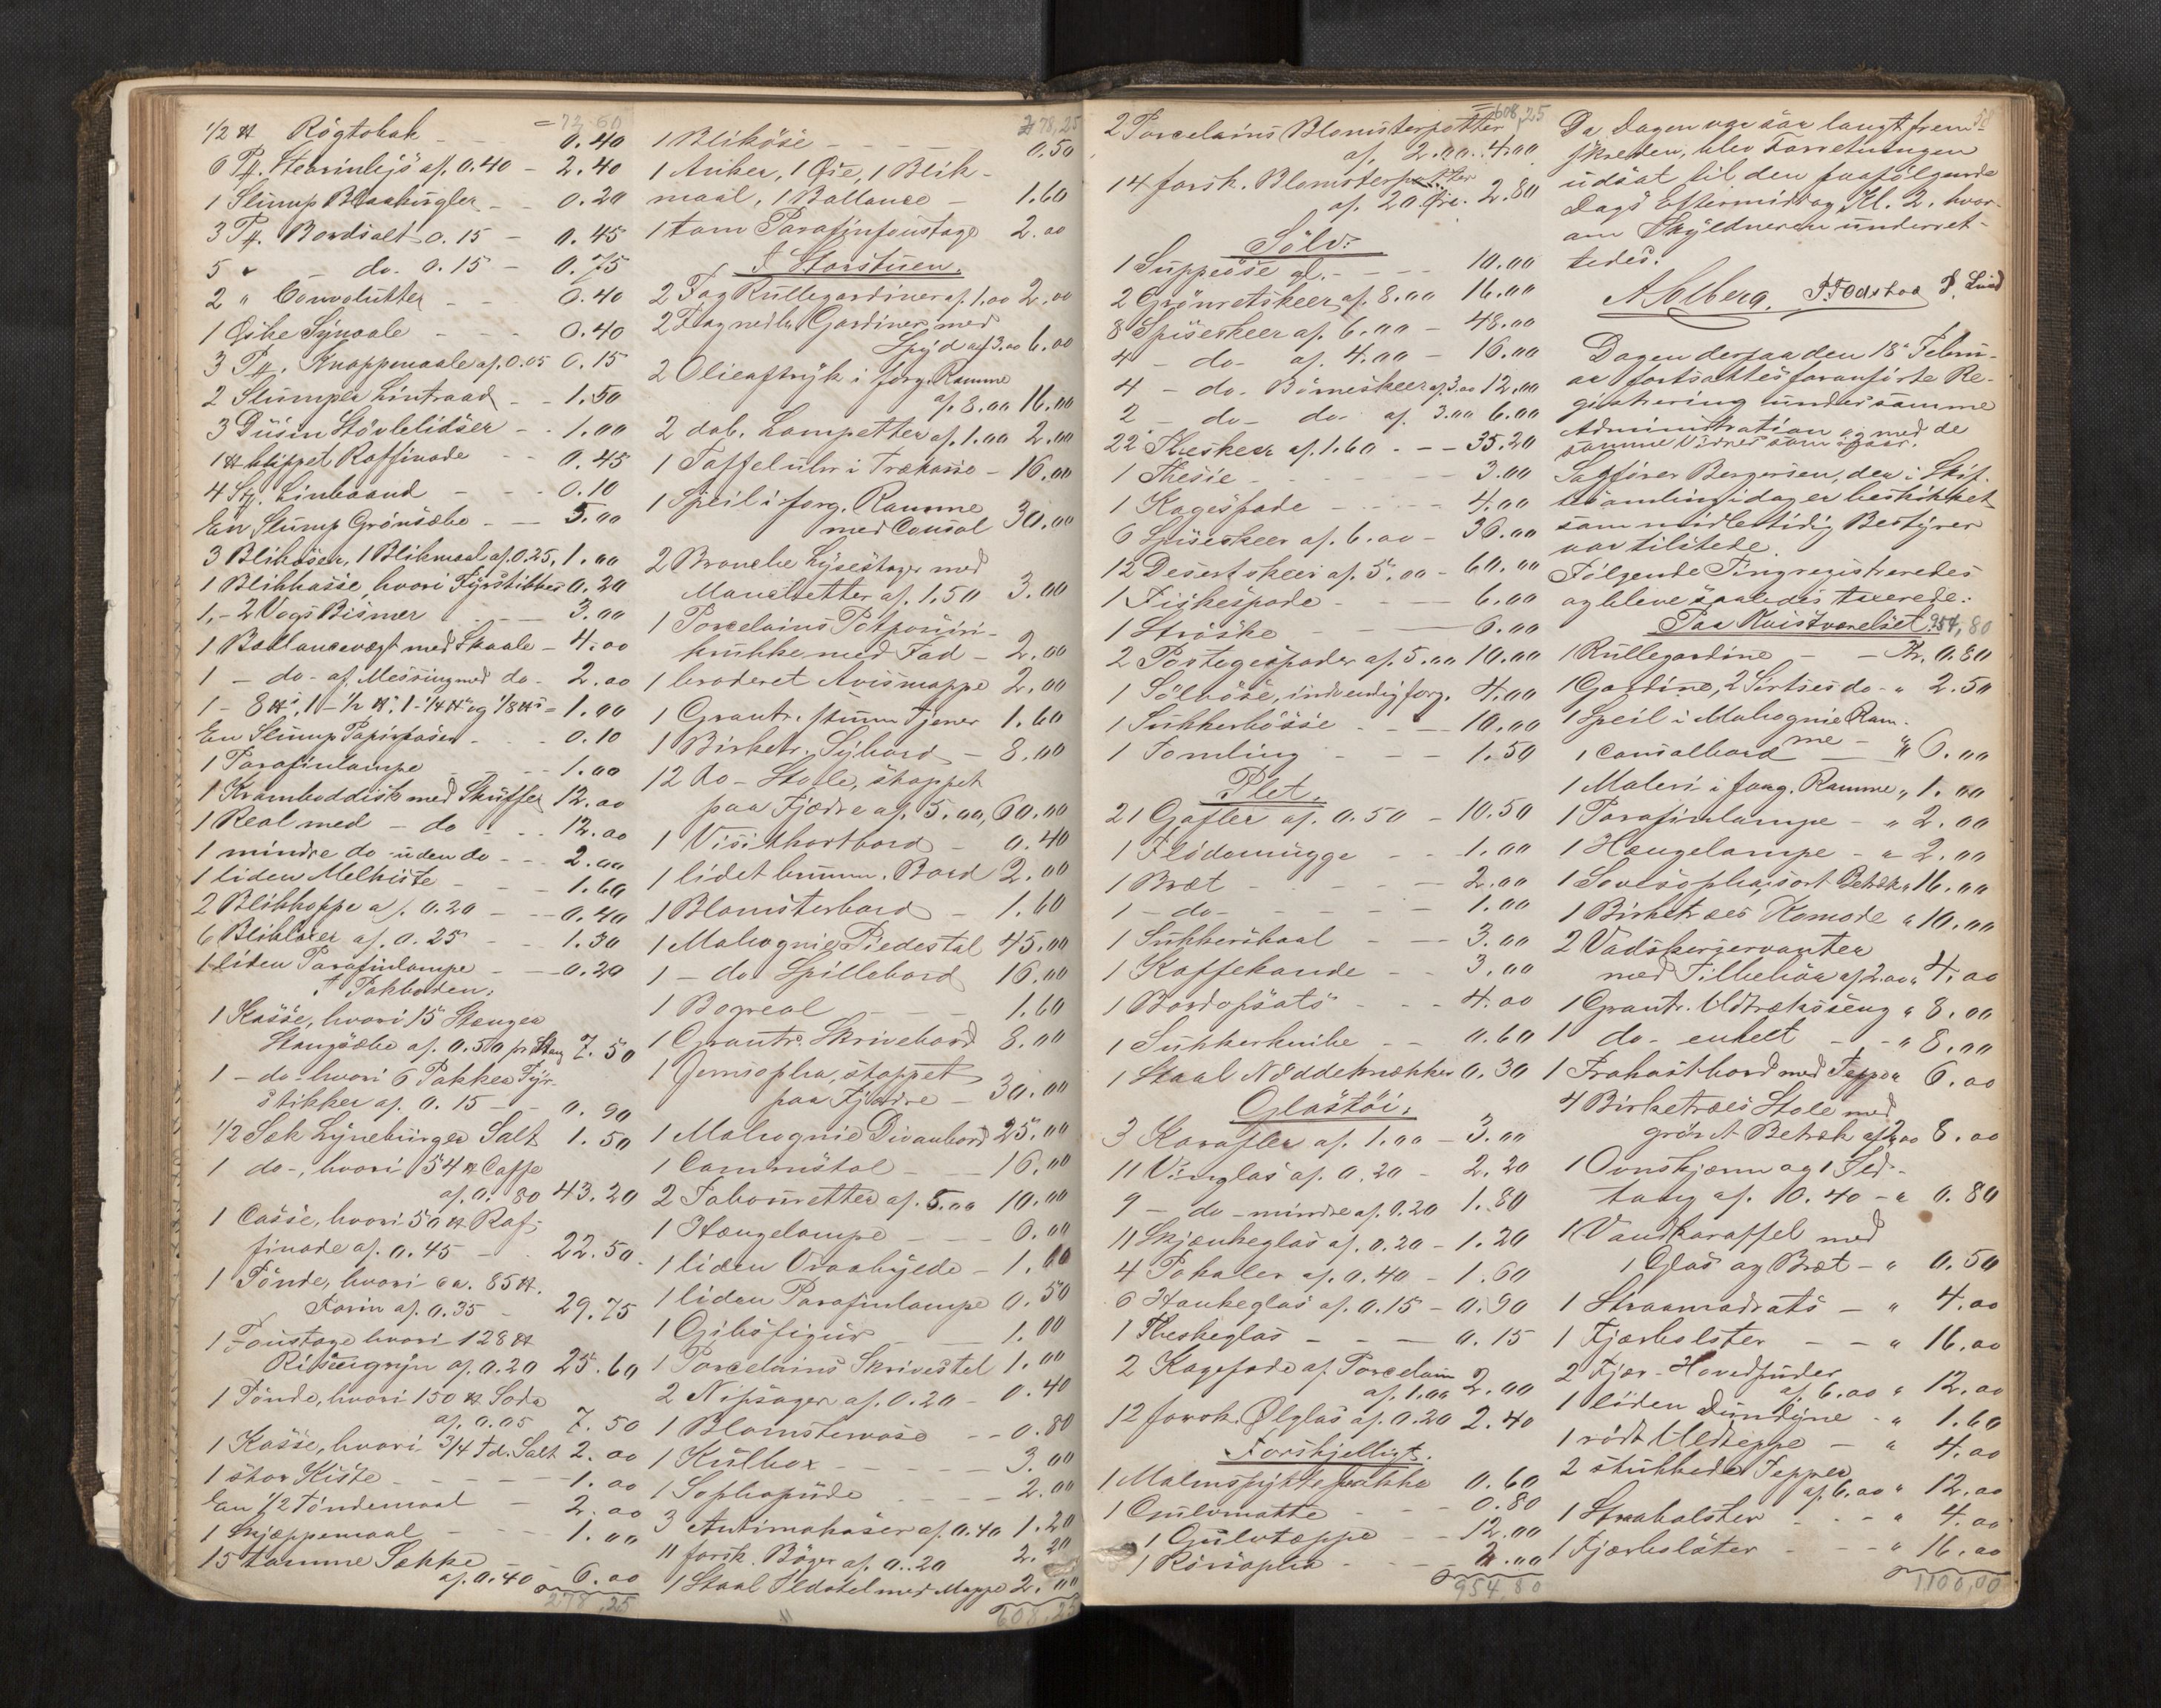 =72,60
1/2 ℔ Rögtobak - - 0.40
6 P℔. Stearinlys af. 0.40 - 2.40
1 Slump Blaakugler - - 0.20
3 P℔. Bordsalt 0.15 - 0.45
5 " - do. 0.15 - 0.75
2 " Convolutter - - 0.40
1 Æske Synaale - - - 0.40
3 P℔. Knappenaale af. 0.05 0.15
2 Slumper Lintraad - - 1.50
3 Dusin Stövlelidser - - 1.00
1 ℔ klippet Raffinade - - 0.45
4 St. Linbaand - - - 0.10
En Slump Grönsæbe - - 5.00
3 Bliköser, 1 Blikmaal af. 0.25, 1.00
1 Blikkasse, hvori Fyrstikker 0.20
1,-2 Vogs Bismer - - 3.00
1 Ballancevægt med Skaale - 4.00
1 - do- af Messing med do - 2.00
1 - 8 ℔s, 1 - 1/2 ℔, 1 - 1/4 ℔ og 1/8 ℔s = 1.00
En Slump Papirposer - - 0.10
1 Parafinlampe - - - 1.00
1 Kramboddisk med Skuffer 12.00
1 Real med - do - - - 12.00
1 mindre do uden do - - 2.00
1 liden Melkiste - - - 1.60
2 Blikkopper af. 0.20 - - 0.40
6 Blik af. 0.25 - - 1.30
1 liden Parafinlampe - - 0.20
I Pakboden:
1 Kasse, hvori 15 Stænger
Stangsæbe af. 0.50 pr Stang 7.50
1 - do - hvori 6 Pakker Fyr-
stikker af. 0.15 - - 0.90
1/2 Sæk Lyneburger Salt 1.50
1 do-, hvori 54 ℔ Caffe
af. 0.80 43.20
1 Casse, hvori 50 ℔ Raf-
finade af. 0.45 - - 22.50
1 Tönde, hvori ca. 85 ℔.
Farin af. 0.35 - 29.75
1 Foustage hvori 128 ℔
Risengryn af. 0.20 25.60
1 Tönde, hvori 150 ℔ Soda
af. 0.05 7.50
1 Kasse, hvori 3/4 Td. Salt 2.00
1 stor Kiste - - - - 1.00
En 1/2 Töndemaal - 2.00
1 Skjæppemaal - - - 1.00
15 tomme Sække - -
af. 0.40 - 6.00
278,25
278,25
1 Bliköse - - - - - 0.50
1 Anker, 1 Öse, 1 Blik-
maal, 1 Ballance - 1.60
1 tom Parafinfoustage 2.00
I Storstuen.
2 Fag Rullegardiner af. 1.00 2.00
2 Fag nedh. Gardiner med
Spyd af 3.00 6.00
2 Olieaftryk i forg. Ramme
af. 8.00 16.00
2 dob. Lampetter af. 1.00 2.00
1 Taffeluhr i Trækasse - 16.00
1 Speil i forg. Ramme
med Consol 30.00
2 Bronche Lysestager med
Manchetter af. 1.50 3.00
1 Porcelains Potpouri-
krukke med Fad - 2.00
1 broderet Avismappe 2.00
1 Grantr. stum Tjener 1.60
1 Birketr. Sybord - 8.00
12 do - Stole, stoppet
paa Fjædre af. 5.00, 60.00
1 Visitkortbord - 0.40
1 lidet brunm. Bord 2.00
1 Blomsterbord - 1.60
1 Mahognie Piedestal 45.00
1 - do Spillebord 16.00
1 Bogreal - - 1.60
1 Grantr. Skrivebord 8.00
1 Jernsopha, stoppet
paa Fjædre - 30.00
1 Mahognie Divanbord 25.00
1 Cannestol - - 16.00
2 Tabouretter af. 5.00 10.00
1 Hængelampe - - 6.00
1 liden Vraahylde - 1.00
1 liden Parafinlampe 0.50
1 Gibsfigur - - - 1.00
1 Porcelains Skrivestel 1.00
2 Nipsager af. 0.20 - 0.40
1 Blomstervase - - 0.80
1 Kulbox - - - 3.00
1 Sophapude - - 2.00
3 Antimakaser af. 0.40 1.20
11 forsk. Böger af. 0.20 2.20
1 Staal Ildstel med Mappe 2.00
608,25
=608,25
2 Porcelains Blomsterpotter
af. 2.00. 4.00
14 forsk. Blomsterpotter
af. 20. Øre. 2.80
Sölv:
1 Suppeöse gl. - - - 10.00
2 Grönretskeer af. 8.00 16.00
8 Spiseskeer af. 6.00 - 48.00
4 - do- af. 4.00 - 16.00
4 - do. Börneskeer af. 3.00 12.00
2 - do- do- af. 3.00 6.00
22 Theskeer af. 1.60 - - 35.20
1 Thesie - - - - - 3.00
1 Kagespade - - - - 4.00
6 Spiseskeer af. 6.00 - 36.00
12 Desertskeer af. 5.00 - 60.00
1 Fiskespade - - - - 6.00
1 Ströske - - - 6.00
2 Postegespader af. 5.00 10.00
1 Sölvöse, indvendig forg. 4.00
1 Sukkerbösse - - - 10.00
1 Tomling - - - 1.50
Plet.
21 Gafler af. 0.50 - 10.50
1 Flödemugge - - 1.00
1 Bræt - - - - - 2.00
1 - do- - - - - 1.00
1 Sukkerskaal - - - 3.00
1 Kaffekande - - 3.00
1 Bordopsats - - - 4.00
1 Sukkerknibe - - 0.60
1 Staal Nöddeknækker 0.30
Glastöi.
3 Karafler af. 1.00 - 3.00
11 Vinglas af. 0.20 - 2.20
9 - do - mindre af. 0.20 1.80
11 Skjænkeglas af. 0.20 - 1.20
4 Pokaler af. 0.40 - 1.60
6 Hankeglas af. 0.15 - 0.90
1 Theskeglas - - - 0.15
2 Kagefade af Porcelain
af. 1.00 2.00
12 forsk. Ølglas af. 0.20 2.40
Forskjelligt.
1 Malmspyttebakke 0.60
1 Gulvmatte - - - 0.80
1 Gulvtæppe - - 12.00
1 Rörsopha - - - 2.00
954,80
58
Da Dagen var saa langt frem-
skreden, blev Forretningen
udsat til den paafölgende
Dags Eftermiddag Kl. 2. hvor-
om Skyldneren underret-
tedes.
A Solberg. P. Fodstad P. Lund
Dagen derpaa den 18de Febru-
ar fortsattes foranförte Re-
gistrering under samme
Administration og med de
samme Vidner som igaar.
Sagförer Bergersen, der i Skif-
tesamling idag er beskikket
som midlertidig Bestyrer
var tilstede.
Fölgende Ting registreredes
og bleve saaledes taxerede:
Paa Kvistværelset. 954,80
1 Rullegardine - - Kr. 0.80
1 Gardine, 2 Sirtses do - " 2.50
1 Speil i Mahognie Ram-
me -
1 Consolbord - " 6.00
1 Maleri i forg. Ramme " 1.00
1 Parafinlampe - " 2.00
1 Hængelampe - " 2.00
1 Sovesopha, sort Betræk " 16.00
1 Birketræs Komode " 10.00
2 Vadskeservanter
med Tilbehör af 2.00 " 4.00
1 Grantr. Udtræksseng " 8.00
1 do- enkelt - - " 8.00
1 Frokostbord med Teppe " 6.00
4 Birketræs Stole med
grönt Betræk af 2.00 8.00
1 Ovnskjærm og 1 Ild-
tang af. 0.40 - " 0.80
1 Vandkaraffel med
1 Glas og Bræt - " 0.50
1 Straamadrats - " 4.00
1 Fjærbolster - - " 16.00
2 Fjær-Hovedpuder
af. 6.00 " 12.00
1 liden Dundyne - " 1.60
1 rödt Uldteppe - " 4.00
2 stukkede Tepper
af. 6.00 " 12.00
1 Straabolster - - - " 4.00
1 Fjærbolster - - - " 16.00
1100,00